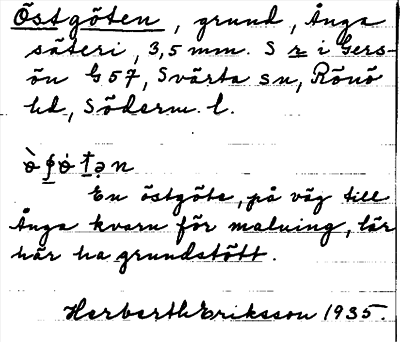 Östgöten, grund, Ånga
säteri, 3,5 mm. S r i Gers-
ön G 57, Svärta sn, Rönö
hd, Söderm. l.
En östgöte, på väg till
Ånga kvarn för malning, lär
här ha grundstött.
Herberth Eriksson 1935.